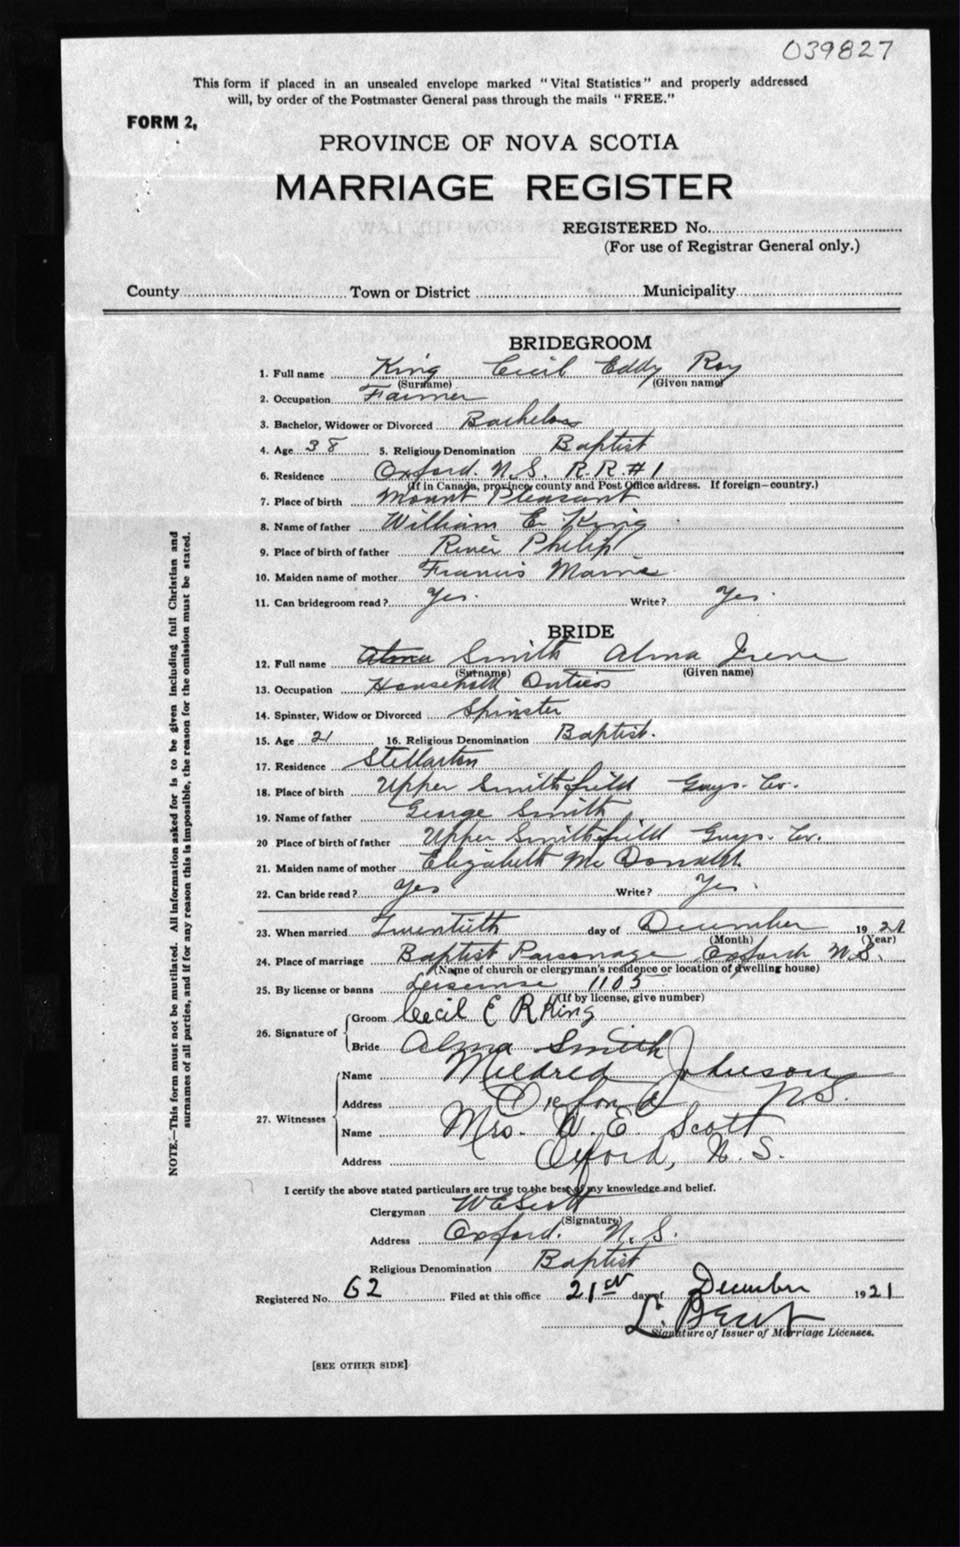 039827
This form if placed in an unsealed envelope marked "Vital Statistics" and properly addressed
will, by order of the Postmaster General pass through the mails "FREE."
FORM 2,
PROVINCE OF NOVA SCOTIA
MARRIAGE REGISTER
REGISTERED No.
(For use of Registrar General only.)
County Town or District Municipality
BRIDEGROOM
1. Full name King Cecil Eddy Roy
(Surname) (Given name)
2. Occupation Farmer
3. Bachelor, Widower or Divorced Bachelor
4. Age 38 5. Religious Denomination Baptist
6. Residence Oxford. N.S. R.R.#1
(If in Canada, province, county and Post Office address. If foreign—country.)
7. Place of birth Mount Pleasant
8. Name of father William E. King
9. Place of birth of father River Philip
10. Maiden name of mother Francis
11. Can bridegroom read? Yes. Write? Yes.
BRIDE
12. Full name Alma Smith Alma Irene
(Surname) (Given name)
13. Occupation Household Duties
14. Spinster, Widow or Divorced Spinster
15. Age 21 16. Religious Denomination Baptist.
17. Residence Stellarton
18. Place of birth Upper Smithfield Guys. Co.
19. Name of father George Smith
20 Place of birth of father Upper Smithfield Guys. Co.
21. Maiden name of mother Elizabeth McDonald
22. Can bride read? Yes Write? Yes.
23. When married Twentieth day of December 1921
(Month) (Year)
24. Place of marriage Baptist Parsonage Oxford N.S.
(Name of church or clergyman's residence or location of dwelling house)
25. By license or banns 1105
(If by license, give number)
26. Signature of
Groom Cecil E R King
Bride Alma Smith
27. Witnesses
Name Mildred Johnson
Address Oxford N.S.
Name Mrs. W. E. Scott
Address Oxford, N.S.
I certify the above stated particulars are true to the best of my knowledge and belief.
Clergyman W E Scott
(Signature)
Address Oxford. N.S.
Religious Denomination Baptist
Registered No. 62 Filed at this office 21st day of December 1921
L. Bent
Signature of Issuer of Marriage Licenses.
[SEE OTHER SIDE]
NOTE.—This form must not be mutilated. All information asked for is to be given including full Christian and
surnames of all parties, and if for any reason this is impossible, the reason for the omission must be stated.